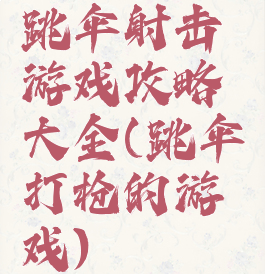 跳伞射击
游戏攻略
大全(跳伞
打枪的游
戏)